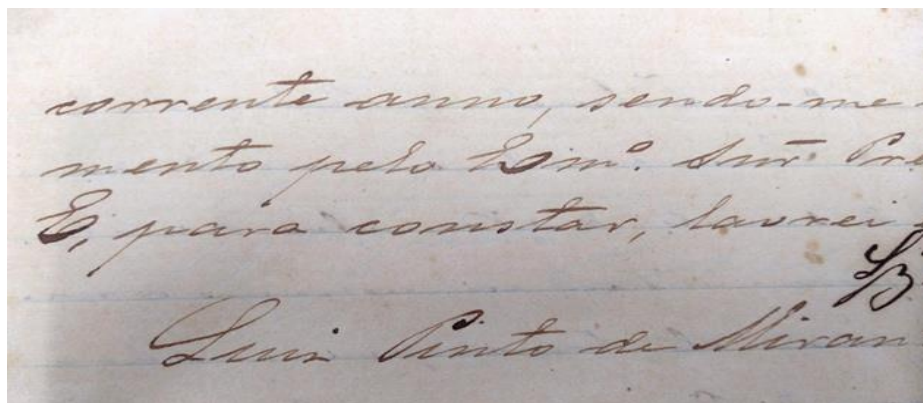 corrente anno, sendo-me
mento pelo Exmº. Snr. Pr
E, para constar, lavrei
Luiz Pinto de Miran